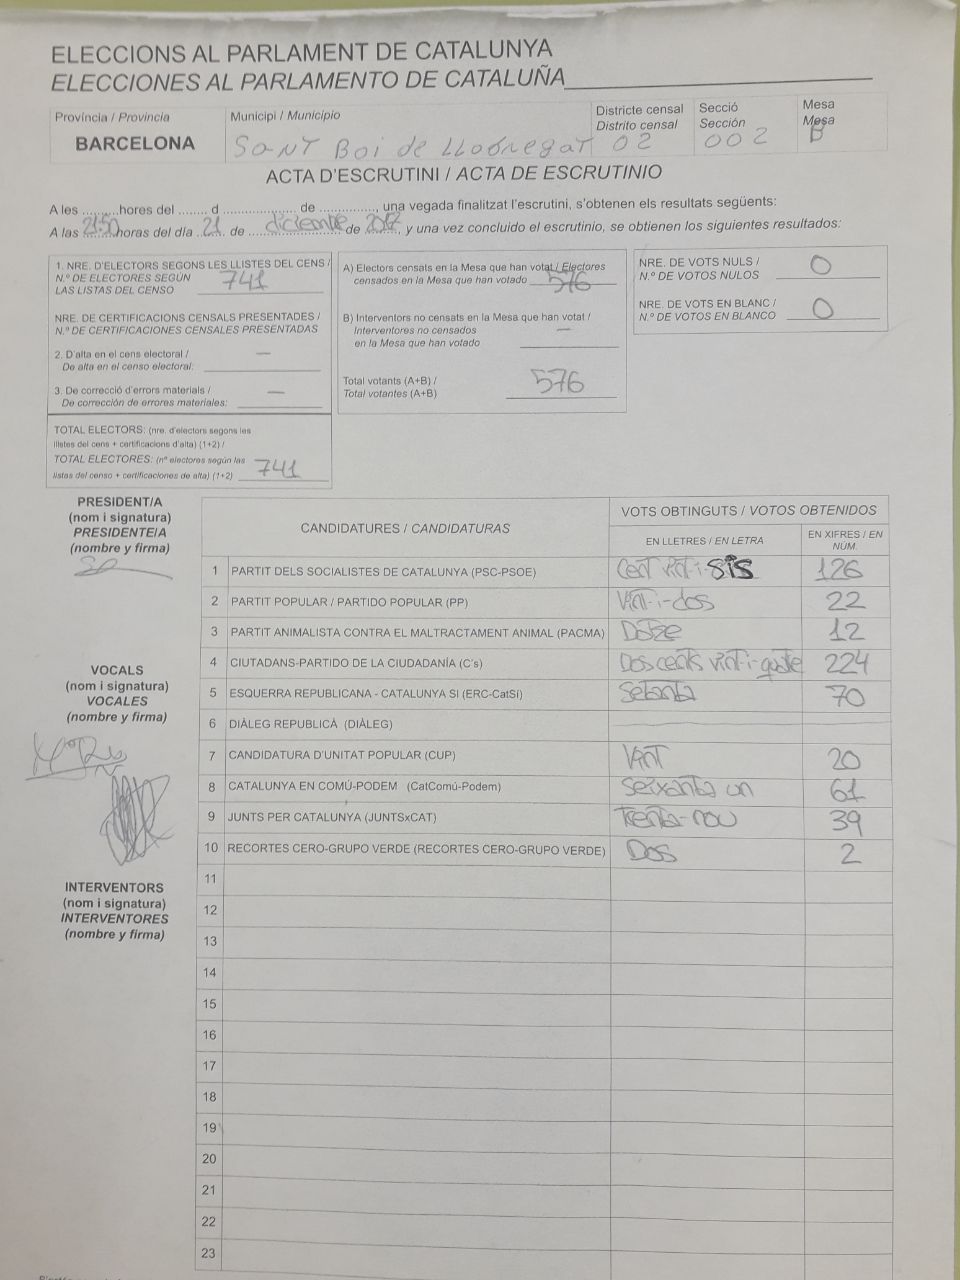 ELECCIONS AL PARLAMENT DE CATALUNYA
ELECCIONES AL PARLAMENTO DE CATALUÑA
Província / Provincia
BARCELONA
Municipi / Municipio
SANT Boi de LLobregat
Districte censal
Distrito censal
02
Secció
Sección
002
Mesa
Mesa
B
ACTA D'ESCRUTINI / ACTA DE ESCRUTINIO
A les ........hores del ........ d .................... de ..............., una vegada finalitzat l'escrutini, s'obtenen els resultats següents:
A las 21:50 horas del día 21 de diciembre de 2017, y una vez concluido el escrutinio, se obtienen los siguientes resultados:
1. NRE. D'ELECTORS SEGONS LES LLISTES DEL CENS /
N.º DE ELECTORES SEGÚN
LAS LISTAS DEL CENSO 741
NRE. DE CERTIFICACIONS CENSALS PRESENTADES /
N.º DE CERTIFICACIONES CENSALES PRESENTADAS
2. D'alta en el cens electoral / —
De alta en el censo electoral:
3. De correcció d'errors materials / —
De corrección de errores materiales:
TOTAL ELECTORS: (nre. d'electors segons les
llistes del cens + certificacions d'alta) (1+2) /
TOTAL ELECTORES: (nº electores según las
listas del censo + certificaciones de alta) (1+2) 741
A) Electors censats en la Mesa que han votat / Electores
censados en la Mesa que han votado 576
B) Interventors no censats en la Mesa que han votat /
Interventores no censados —
en la Mesa que han votado
Total votants (A+B) /
Total votantes (A+B) 576
NRE. DE VOTS NULS /
N.º DE VOTOS NULOS 0
NRE. DE VOTS EN BLANC /
N.º DE VOTOS EN BLANCO 0
PRESIDENT/A
(nom i signatura)
PRESIDENTE/A
(nombre y firma)
VOCALS
(nom i signatura)
VOCALES
(nombre y firma)
INTERVENTORS
(nom i signatura)
INTERVENTORES
(nombre y firma)
CANDIDATURES / CANDIDATURAS
VOTS OBTINGUTS / VOTOS OBTENIDOS
EN LLETRES / EN LETRA
EN XIFRES / EN NÚM.
1 PARTIT DELS SOCIALISTES DE CATALUNYA (PSC-PSOE) Cent vint-i-sis 126
2 PARTIT POPULAR / PARTIDO POPULAR (PP) Vint-i-dos 22
3 PARTIT ANIMALISTA CONTRA EL MALTRACTAMENT ANIMAL (PACMA) Dotze 12
4 CIUTADANS-PARTIDO DE LA CIUDADANÍA (C's) Dos cents vint-i-quatre 224
5 ESQUERRA REPUBLICANA - CATALUNYA SI (ERC-CatSí) Setanta 70
6 DIÀLEG REPUBLICÀ (DIÀLEG)
7 CANDIDATURA D'UNITAT POPULAR (CUP) Vint 20
8 CATALUNYA EN COMÚ-PODEM (CatComú-Podem) Seixanta un 61
9 JUNTS PER CATALUNYA (JUNTSxCAT) Trenta-nou 39
10 RECORTES CERO-GRUPO VERDE (RECORTES CERO-GRUPO VERDE) Dos 2
11
12
13
14
15
16
17
18
19
20
21
22
23